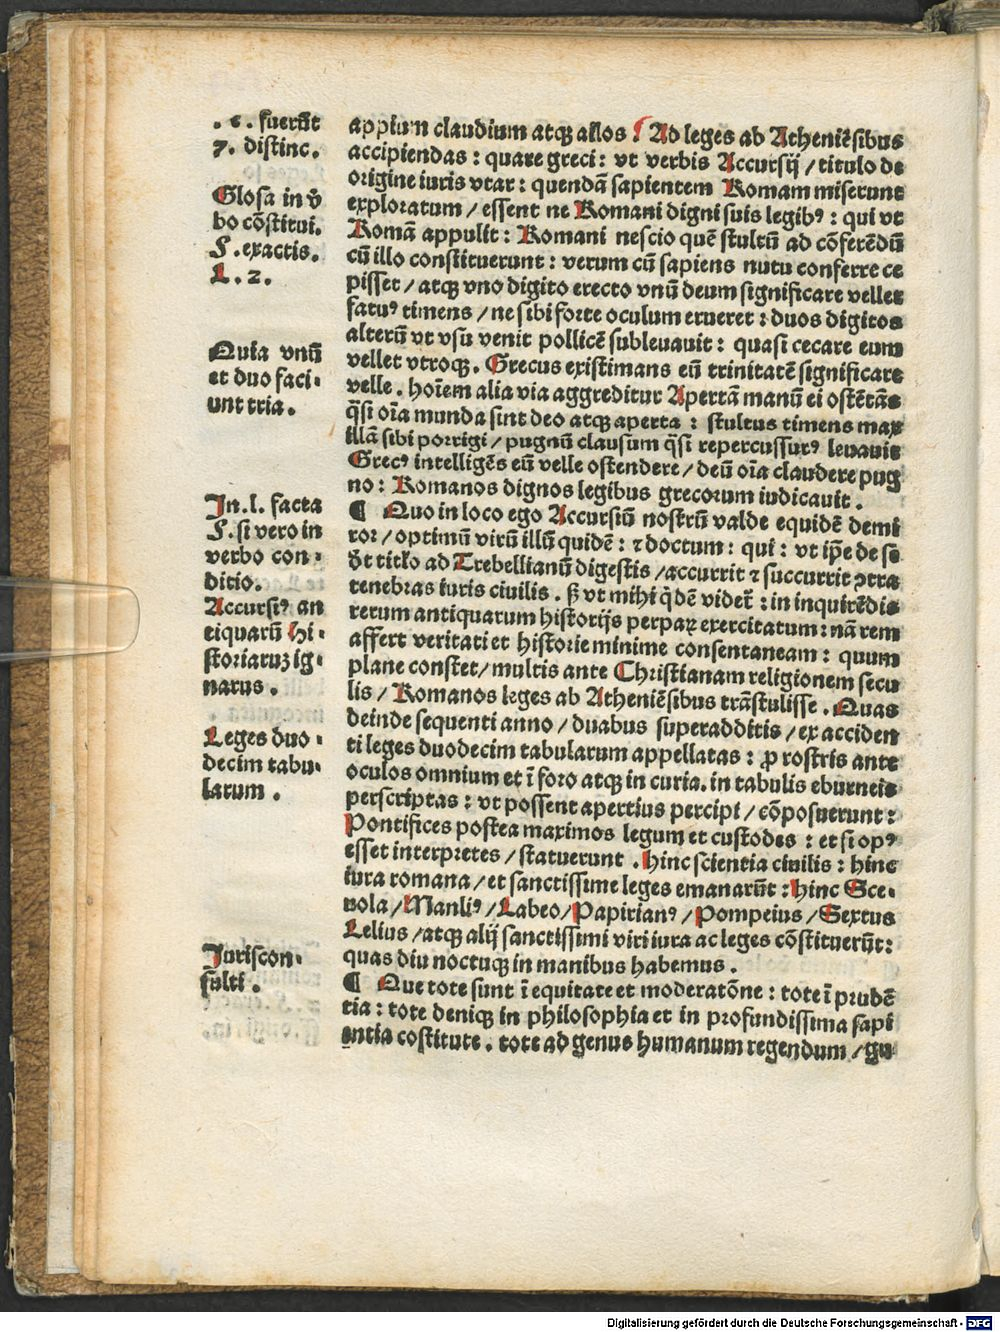 . c . fuerũt
7. distinc.
Glosa in ṽ
bo cõstitui.
§. exactis.
L. 2.
Quia vnũ
et duo faci-
unt tria.
In. l. facta
§. si vero in
verbo con-
ditio.
Accursiꝰ an
tiquarũ hi-
storiaruꝫ ig-
narus.
Leges duo-
decim tabu-
larum.
Iuriscon-
sulti.
appium claudium atqꝫ alios ! Ad leges ab Atheniẽsibus
accipiendas : quare greci : vt verbis Accursij / titulo de
origine iuris vtar : quendã sapientem Romam miserunt
exploratum / essent ne Romani digni suis legibꝰ : qui vt
Romã appulit : Romani nescio quẽ stultũ ad cõferẽdũ
cũ illo constituerunt : verum cũ sapiens nutu conferre ce
pisset / atqꝫ vno digito erecto vnũ deum significare vellet
fatuꝰ timens / ne sibi forte oculum erueret : duos digitos
alterũ vt vsu venit pollicẽ subleuauit : quasi cecare eum
vellet vtroqꝫ. Grecus existimans eũ trinitatẽ significare
velle. hoĩem alia via aggreditur Apertã manũ ei ostẽtãs
q̃si oĩa munda sint deo atqꝫ aperta : stultus timens max
illã sibi porrigi / pugnũ clausum q̃si repercussurꝰ leuauit
Grecꝰ intelligẽs eũ velle ostendere / deũ oĩa claudere pug
no : Romanos dignos legibus grecorum iudicauit.
¶ Quo in loco ego Accursiũ nostrũ valde equidẽ demi
ror / optimũ virũ illũ quidẽ : ⁊ doctum : qui : vt ip̃e de se
titĩo ad Trebellianũ digestis / accurrit ⁊ succurrit ꝯtra
tenebras iuris ciuilis. sꝫ vt mihi q̃dẽ videt̃ : in inquirẽdis
rerum antiquarum historijs perpaꝝ exercitatum : nã rem
affert veritati et historie minime consentaneam : quum
plane constet / multis ante Christianam religionem secu
lis / Romanos leges ab Atheniẽsibus trãstulisse. Quas
deinde sequenti anno / duabus superadditis / ex acciden
ti leges duodecim tabularum appellatas : ꝓ rostris ante
oculos omnium et ĩ foro atqꝫ in curia. in tabulis eburneis
perscriptas : vt possent apertius percipi / cõposuerunt :
Pontifices postea maximos legum et custodes : et si opꝰ
esset interpretes / statuerunt. hinc scientia ciuilis : hinc
iura romana / et sanctissime leges emanarũt : hinc Sce-
uola / Manliꝰ / Labeo / Papirianꝰ / Pompeius / Sextus
Lelius / atqꝫ alij sanctissimi viri iura ac leges cõstituerũt :
quas diu noctuqꝫ in manibus habemus.
¶ Que tote sunt ĩ equitate et moderatõne : tote ĩ prudẽ
tia : tote deniqꝫ in philosophia et in profundissima sapi
entia cõstitute. tote ad genus humanum regendum / gu
Digitalisierung gefördert durch die Deutsche Forschungsgemeinschaft - DFG